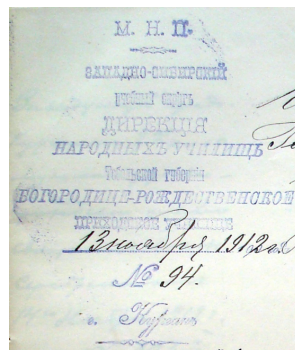 М. Н. П.
ЗАПАДНО-СИБИРСКІЙ
учебный округъ
ДИРЕКЦІЯ
НАРОДНЫХЪ УЧИЛИЩЪ
Тобольской губерніи
БОГОРОДИЦЕ-РОЖДЕСТВЕНСКОЕ
ПРИХОДСКОЕ УЧИЛИЩЕ
13 ноября 1912 г.
№ 94.
г. Курган